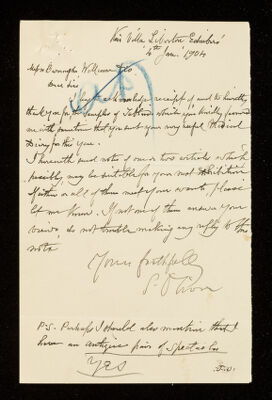 Villa Liberton Edinbro'
4th Jany. 1904
Messrs Burroughs Wellcome & Co.
Dear Sirs
I beg to acknowledge receipt of and to heartily
thank you for the samples of which you kindly favoured
me with & mention that you sent your very useful Medical
Diary for this year.
I herewith send note of one or two articles which
possibly may be suitable for your next Exhibition
If either or all of them meet your wants please
let me know. If not one of them answer your
views, do not trouble making any reply to this
note
Yours faithfully
P.S. Perhaps I should also mention that I
have an antique pair of Spectacles
Yes